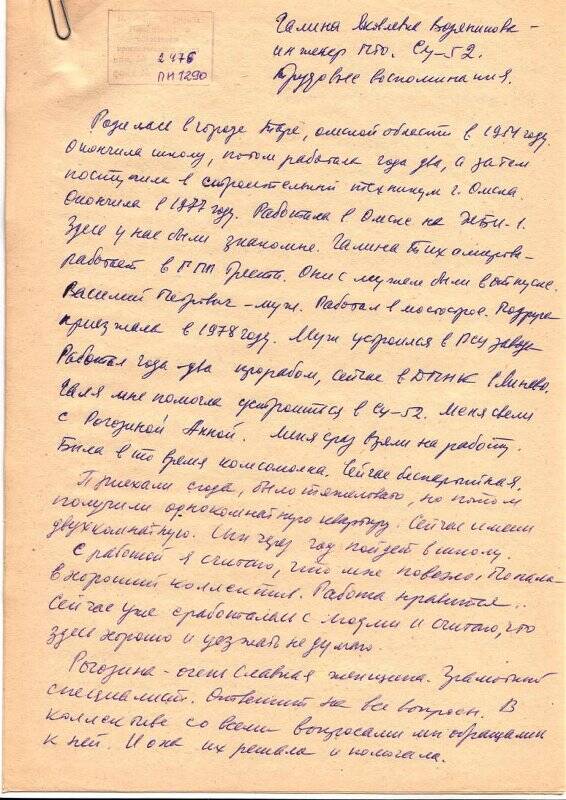 2476
ПИ 1290
Галина Яковлевна Водяникова -
инженер ПТО. Су-52.
Трудовые воспоминания.
Родилась в городе Таре, омской области в 1954 году.
Окончила школу, потом работала года два, а затем
поступила в строительный техникум г. Омска.
Окончила в 1977 году. Работала в Омске на ЖБИ-1.
Здесь у нас были знакомые. Галина Тихомирова
работает в Треста. Они с мужем были в отпуске.
Василий Петрович - муж. Работал в мостострое. Подруга
приезжала в 1978 году. Муж устроился в
Работал года два прорабом, сейчас в Линево.
Галя мне помогла устроится в Су-52. Меня свели
с Рогозиной Анной. Меня сразу взяли на работу.
Была в то время комсомолка. Сейчас беспартийная.
Приехали сюда, было тяжеловато, но потом
получили однокомнатную квартиру. Сейчас имеем
двухкомнатную. Сын через год пойдет в школу.
С работой я считаю, что мне повезло. Попала
в хороший коллектив. Работа нравится..
Сейчас уже сработалась с людми и считаю, что
здесь хорошо и уезжать не думаю.
Рогозина - очень славная женщина. Грамотный
специалист. Ответит на все вопросы. В
коллективе со всеми вопросами мы обращались
к ней. И она их решала и помогала.